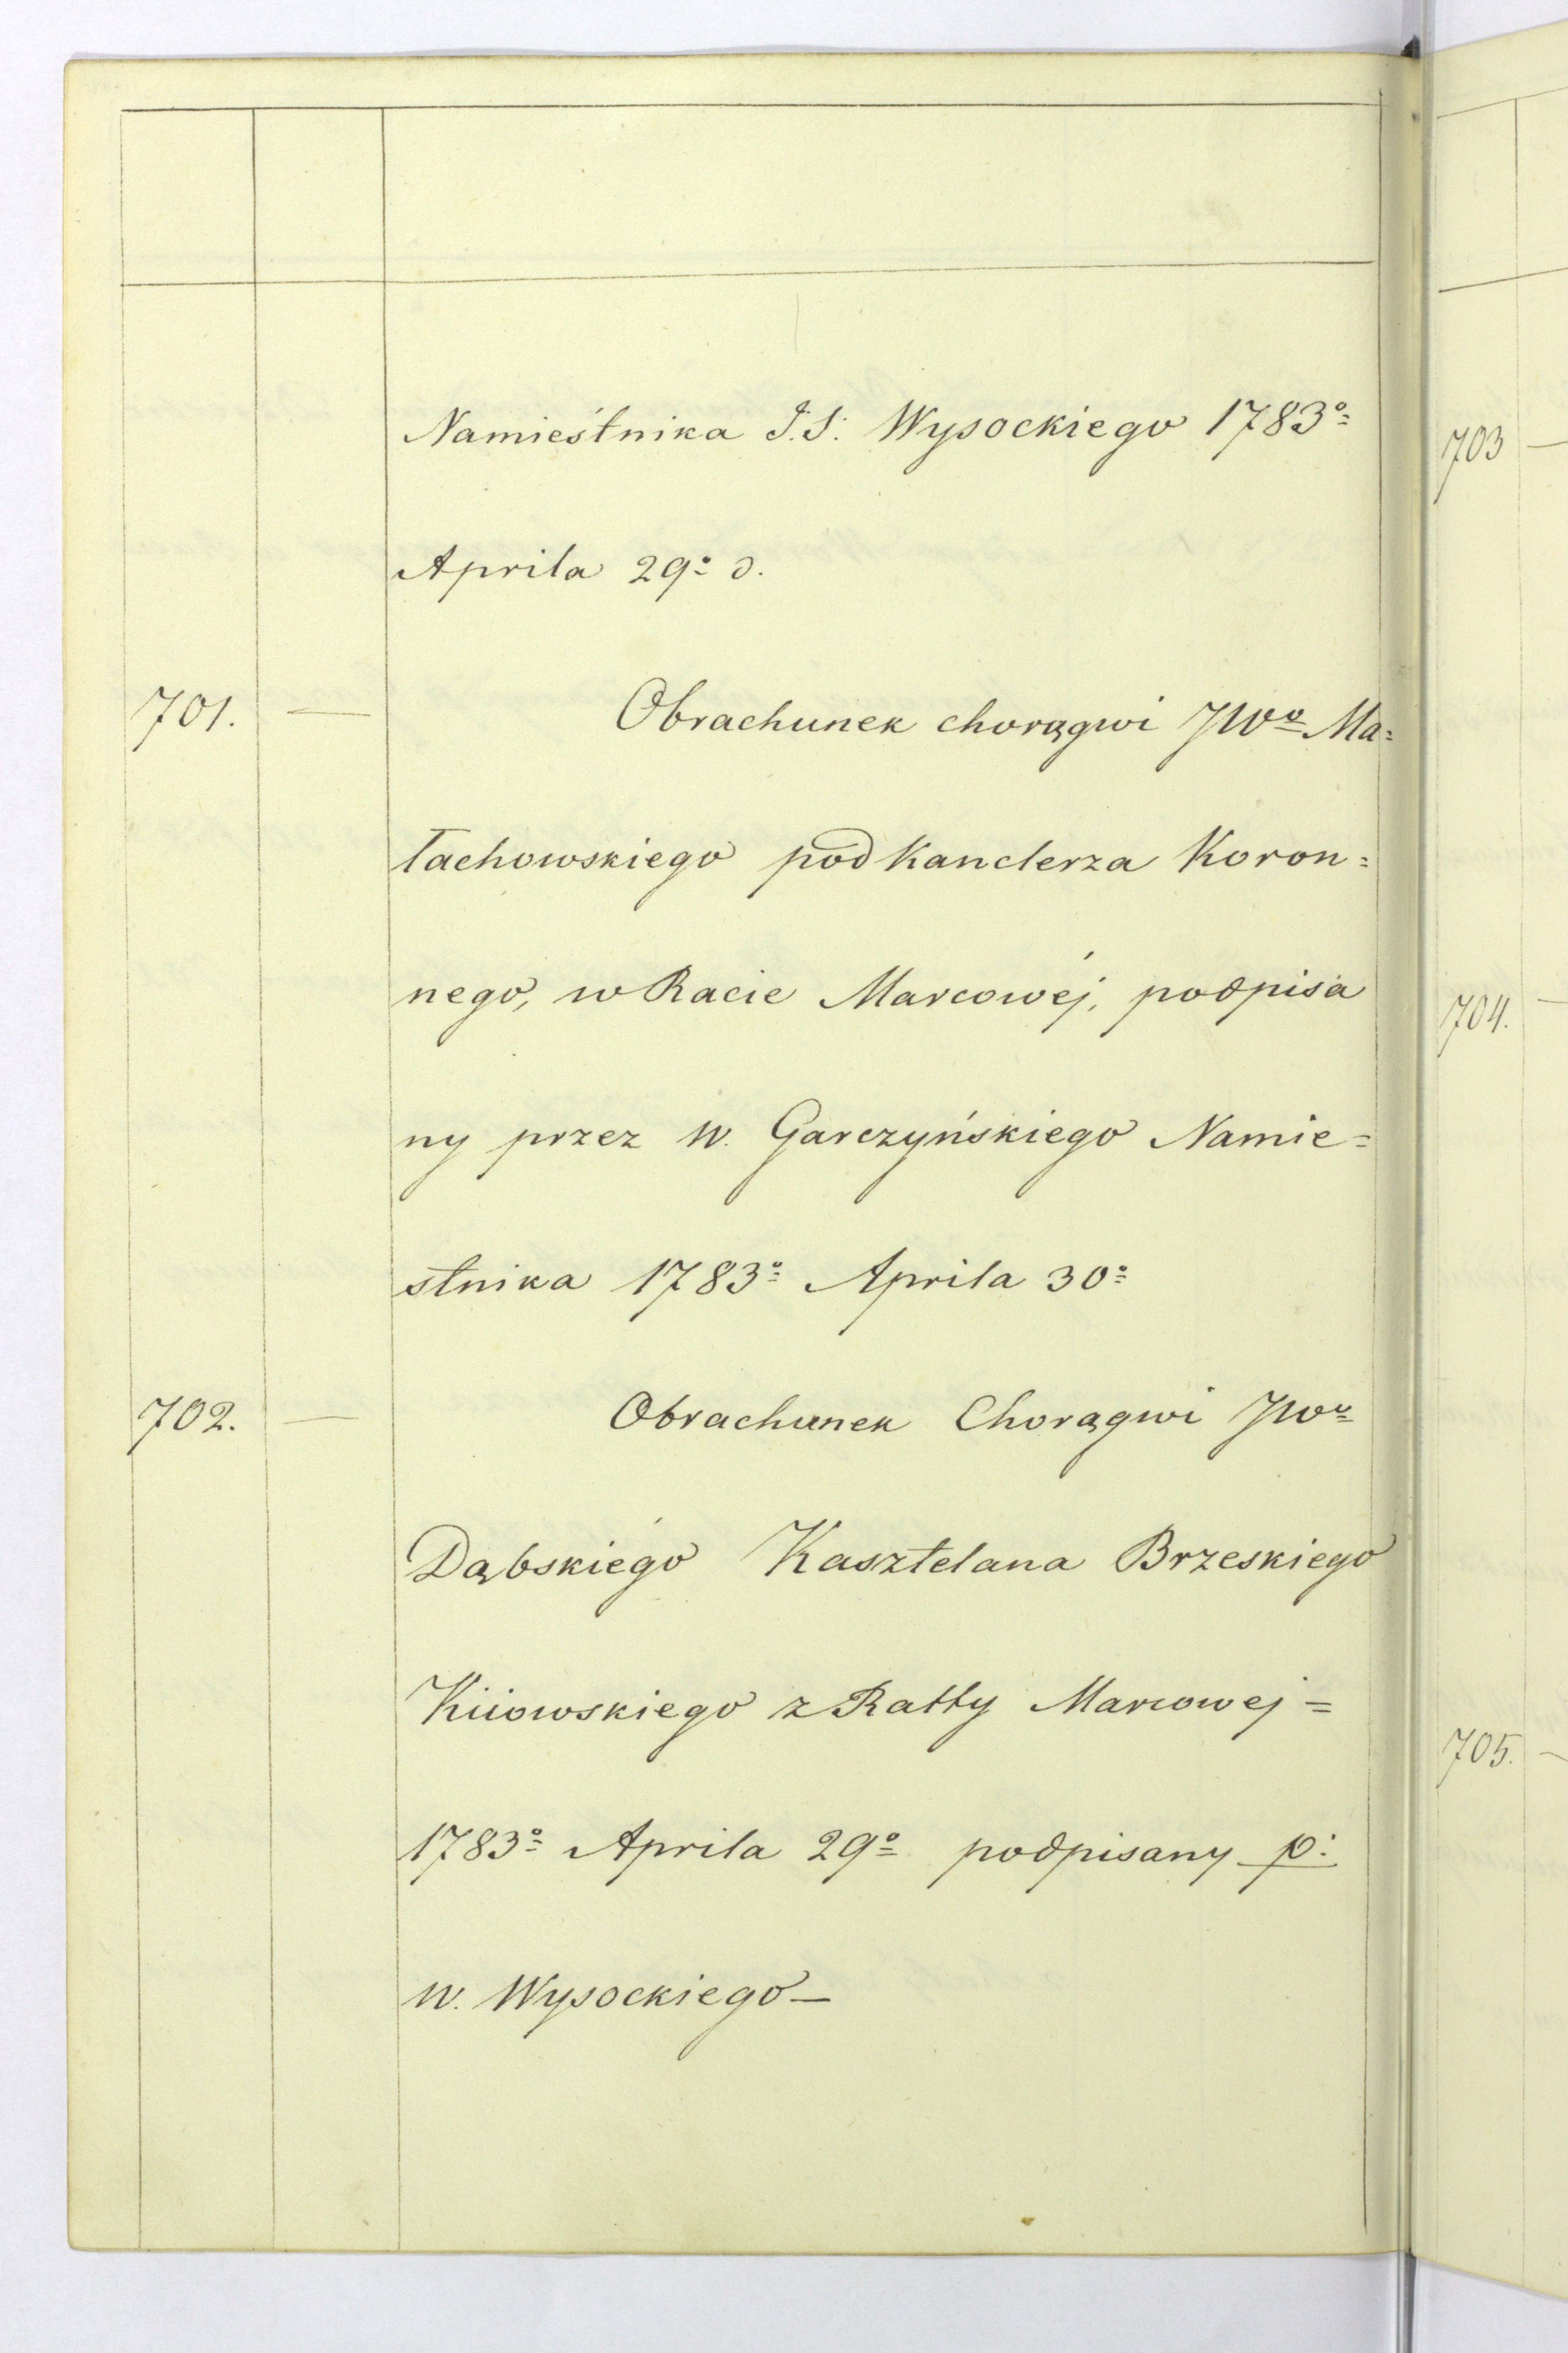 Namiestnika J.S. Wysockiego 1783º
Aprila 29º d.
701. — Obrachunek chorągwi JWº Ma=
łachowskiego pod Kanclerza Koron=
nego, w Racie Marcowéj, podpisa
ny przez W. Garczyńskiego Namie=
stnika 1783º Aprila 30º
702. — Obrachunek Chorągwi JWº
Dąbskiego Kasztelana Brzeskiego
Kiiowskiego z Ratty Marcowej =
1783º Aprila 29º podpisany p:
W. Wysockiego —
703 —
704. —
705. —